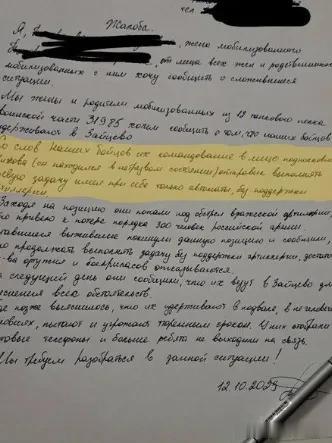 чел.
Жалоба.
Я, жена мобилизованного
от лица всех жен и родственников
мобилизованных с ним хочу сообщить о сложившейся
ситуации.
Мы жены и родители мобилизованных из 12 танкового полка
воинской части 31985 хотим сообщить о том, что наших бойцов
удерживают в Зайцево
Со слов наших бойцов их командование в лице
(он находился в нетрезвом состоянии) отправил выполнять
задачу имея при себе только автоматы, без поддержки
артиллерии.
Заходя на позицию они попали под обстрел вражеской артиллерии,
что привело к потере порядка 300 человек российской армии.
Оставшиеся выжившие покинули данную позицию и сообщили,
продолжать выполнять задачу без поддержки артиллерии,
оружия и боеприпасов отказываются.
На следующий день они сообщили, что их везут в Зайцево для
выяснения всех обстоятельств.
позже выяснилось, что их удерживают в подвале, в не
условиях, пытают и угрожают тюремным сроком. У них отобрали
телефоны и больше ребята не выходили на связь.
Мы требуем разобраться в данной ситуации!
12.10.2023